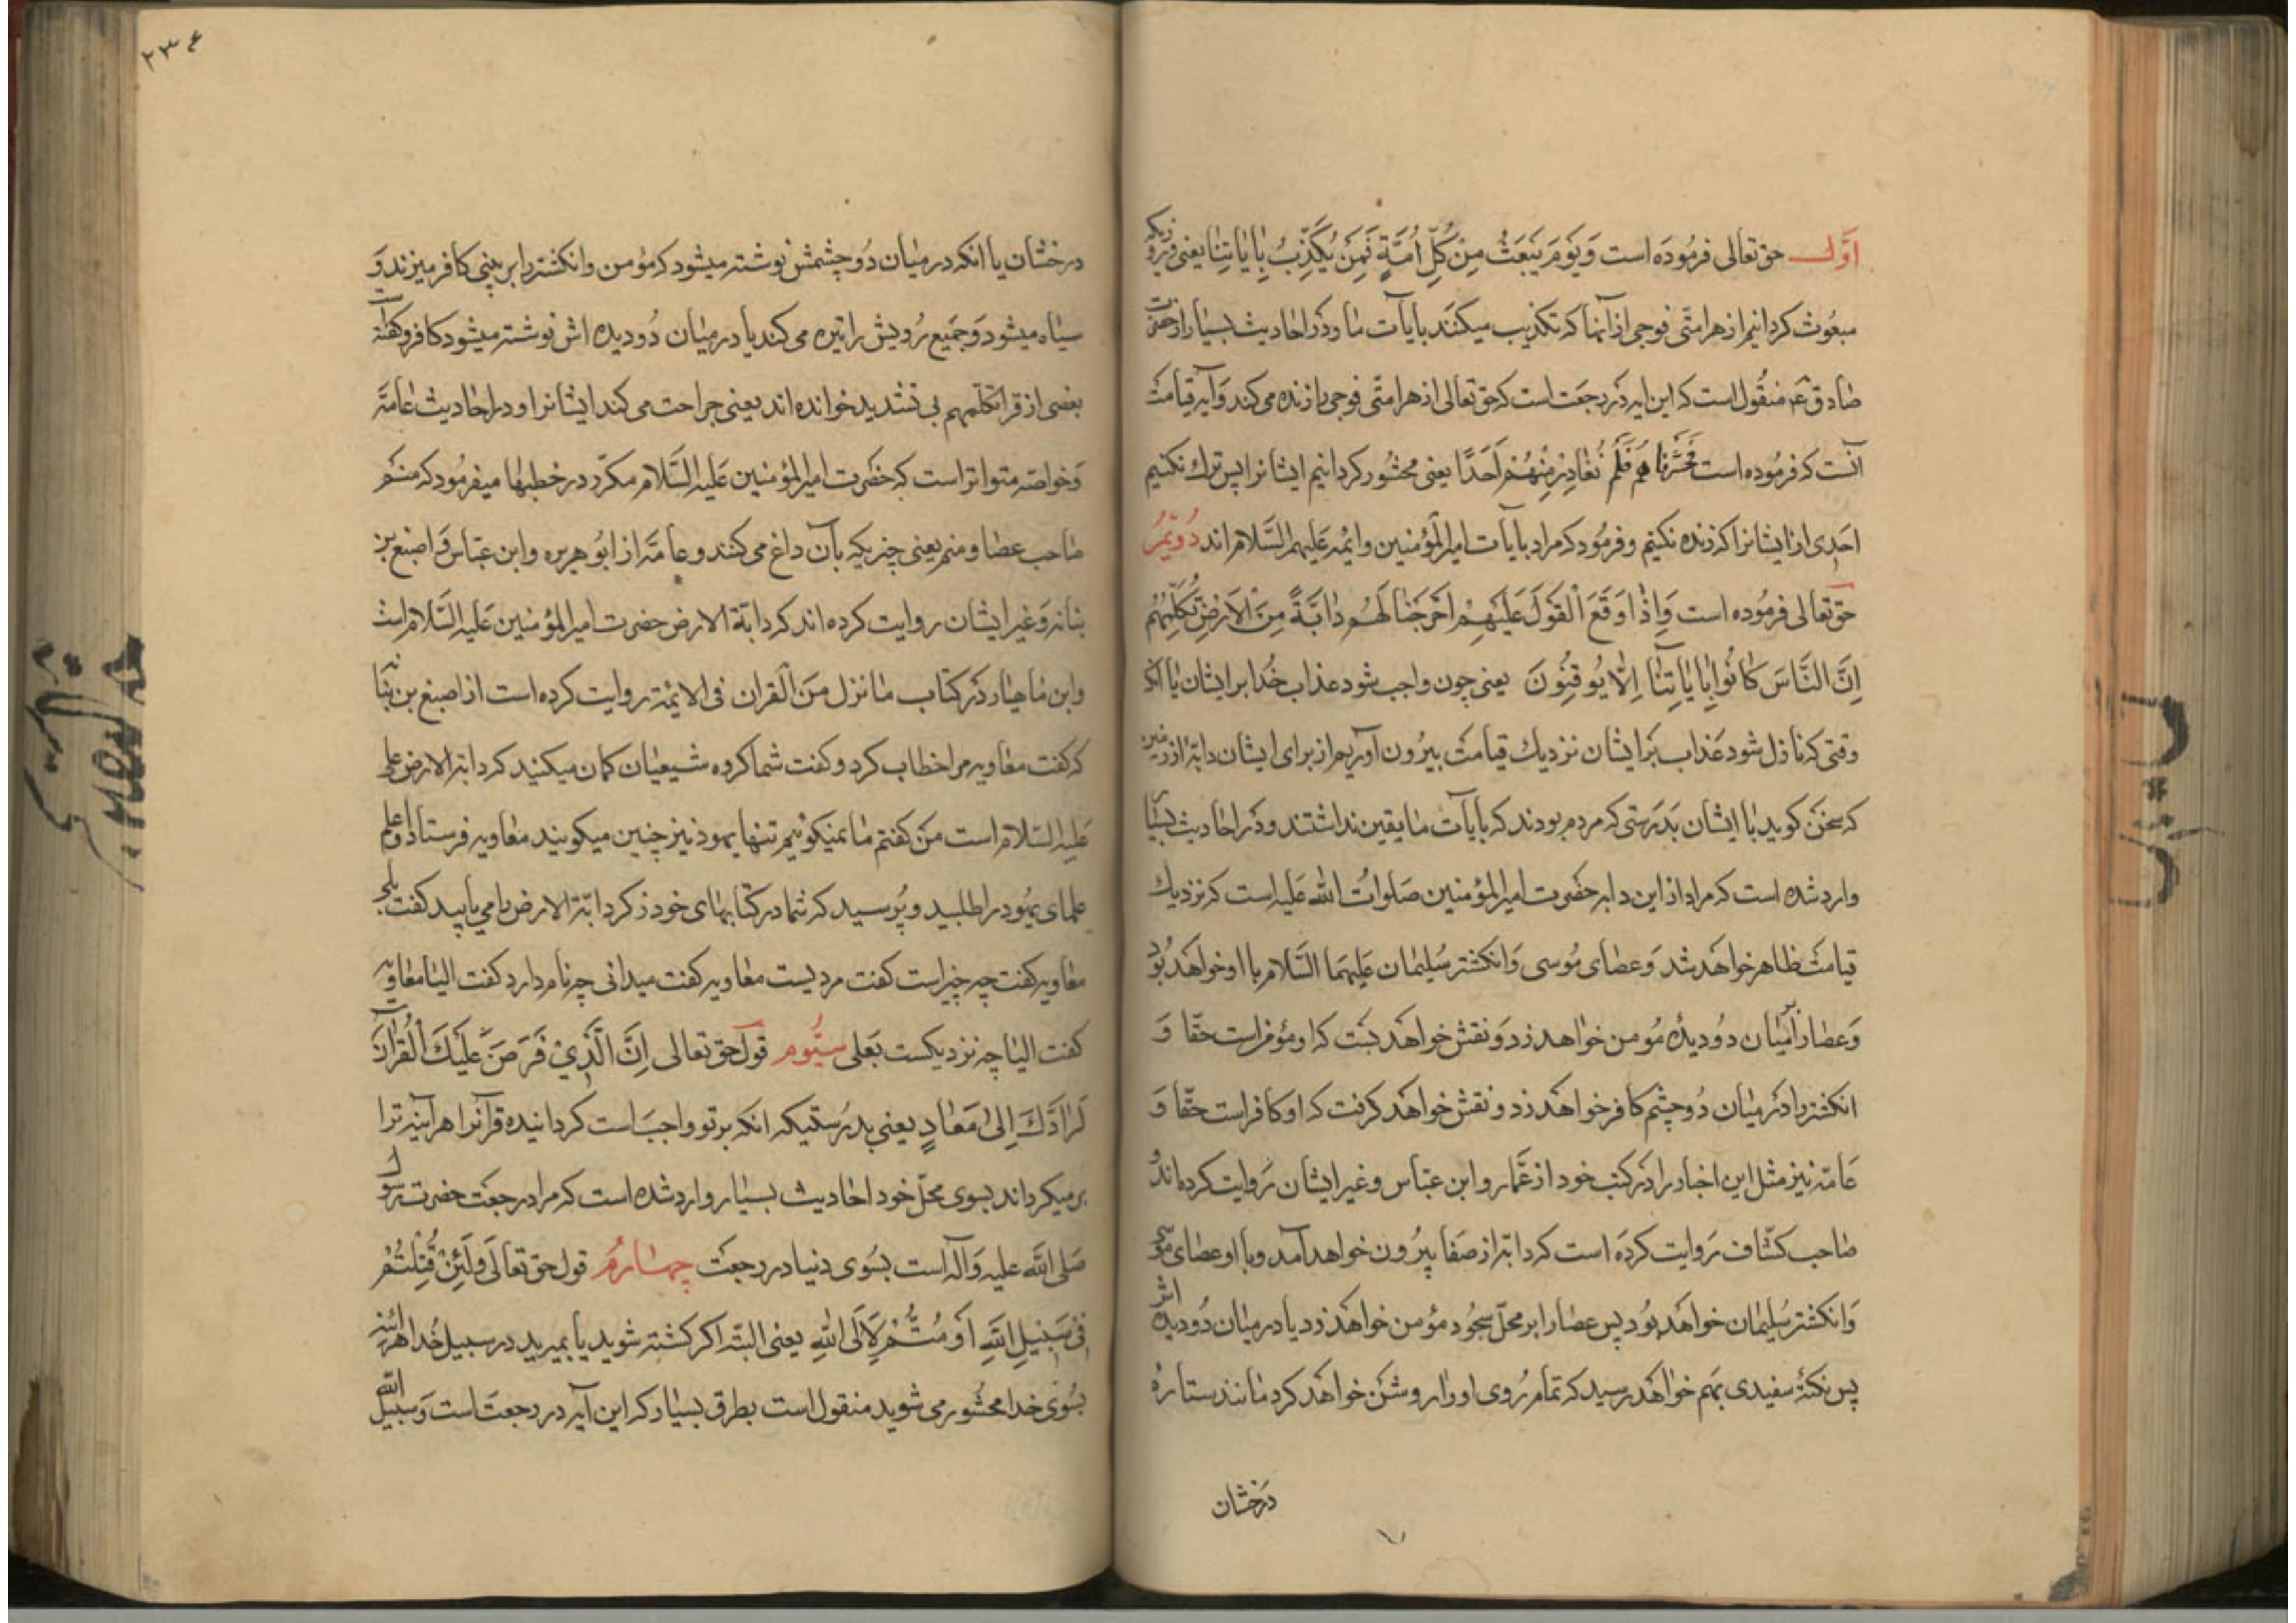 اوّل حق تعالی فرموده است وَيَوْمَ يَبْعَثُ مِنْ كُلِّ اُمَّةٍ فَمَنْ يُكَذِّبُ بِاٰيٰاتِنٰا يعنی روزیکه
مبعوث کردانیم از هر امتی فوجی از آنها که تکذیب میکنند بآیات ما و در احادیث بسیار از حضرت
صادق ع منقول است که این ایه در رجعت است که حق تعالی از هر امتی فوجی را زنده می کند و آیه قیامت
آنست که فرموده است حَشَرْنٰا هُمْ فَلَمْ نُغٰادِرْ مِنْهُمْ اَحَدًا یعنی محشور کردانیم ایشانرا پس ترک نکنیم
احدی از ایشانرا که زنده نکنیم و فرمود که مراد بآیات امیرالمؤمنین وائمه علیهم السلام اند دویّم
حق تعالی فرموده است وَاِذٰا وَقَعَ الْقَوْلُ عَلَيْهِمْ اَخْرَجْنٰا لَهُمْ دٰابَّةً مِنَ الْاَرْضِ تُكَلِّمُهُمْ
اِنَّ النَّاسَ كٰانُوا بِاٰيٰاتِنٰا لٰا يُوقِنُونَ یعنی چون واجب شود عذاب خدا بر ایشان یا انکه
وقتی که نازل شود عذاب بر ایشان نزدیک قیامت بیرون آوریم از برای ایشان دابهٔ از زمین
که سخن کوید با ایشان بدرستی که مردم بودند که بآیات ما یقین نداشتند و در احادیث بسیار
وارد شده است که مراد از این دابه حضرت امیرالمؤمنین صلوات الله علیه است که نزدیک
قیامت ظاهر خواهد شد و عصای موسی و انکشتر سلیمان علیهما السلام با او خواهد بود
و عصا را بر میان دو دیدهٔ مومن خواهد زد و نقش خواهد بست که او مؤمن است حقّا و
انکشتر را در میان دو چشم کافر خواهد زد و نقش خواهد کرفت که او کافر است حقّا و
عامّه نیز مثل این اخبار را در کتب خود از عمّار و ابن عبّاس و غیر ایشان روایت کرده اند و
صاحب کشّاف روایت کرده است که دابّه از صفا بیرون خواهد آمد و با او عصای موسی
و انکشتر سلیمان خواهد بود پس عصا را بر محلّ سجود مؤمن خواهد زد یا در میان دو دیده اش
پس نکتهٔ سفیدی بهم خواهد رسید که تمام روی او را روشن خواهد کرد مانند ستارهٔ
درخشان
۲۳۴
درخشان یا انکه در میان دو چشمش نوشته میشود که مؤمن و انکشتر را بر بینی کافر میزند و
سیاه میشود و جمیع رویش را تیره می کند یا در میان دو دیده اش نوشته میشود کافر و کفته است
بعضی از قرا تکلمهم بی تشدید خوانده اند یعنی جراحت می کند ایشانرا و در احادیث عامّه
و خواصه متواتر است که حضرت امیرالمؤمنین علیه السلام مکرّر در خطبها میفرمود که منم
صاحب عصا و منم یعنی چیزیکه بآن داغ می کنند و عامّه از ابو هریره و ابن عبّاس و اصبغ بن
نباته و غیر ایشان روایت کرده اند که دابّة الارض حضرت امیرالمؤمنین علیه السلام است
و ابن ماهیار در کتاب ما نزل من القران فی الائمة روایت کرده است از اصبغ بن نباته
که کفت معاویه مرا خطاب کرد و کفت شما کروه شیعیان کمان میکنید که دابّة الارض علی
علیه السلام است من کفتم ما نمیکوئیم تنها یهود نیز چنین میکویند معاویه فرستاد و اعلم
علمای یهود را طلبید و پرسید که شما در کتابهای خود ذکر دابّة الارض را می یابید کفت بلی
معاویه کفت چه چیز است کفت مردیست معاویه کفت میدانی چه نام دارد کفت الیا معاویه
کفت الیا چه نزدیکست بعلی سیّوم قول حق تعالی اِنَّ الَّذِي فَرَضَ عَلَيْكَ الْقُرْاٰنَ
لَرٰادُّكَ اِلىٰ مَعٰادٍ یعنی بدرستیکه انکه بر تو واجب است کردانیده قرآنرا هرآینه ترا
بر میکرداند بسوی محلّ خود احادیث بسیار وارد شده است که مراد رجعت حضرت رسول
صلی الله علیه و آله است بسوی دنیا در رجعت چهارم قول حق تعالی وَلَئِنْ قُتِلْتُمْ
فِى سَبِيلِ اللهِ اَوْ مُتُّمْ لَاِلَى اللهِ یعنی البتّه اکر کشته شوید یا بمیرید در سبیل خدا هراینه
بسوی خدا محشور می شوید منقول است بطرق بسیار که این آیه در رجعت است و سبیل الله